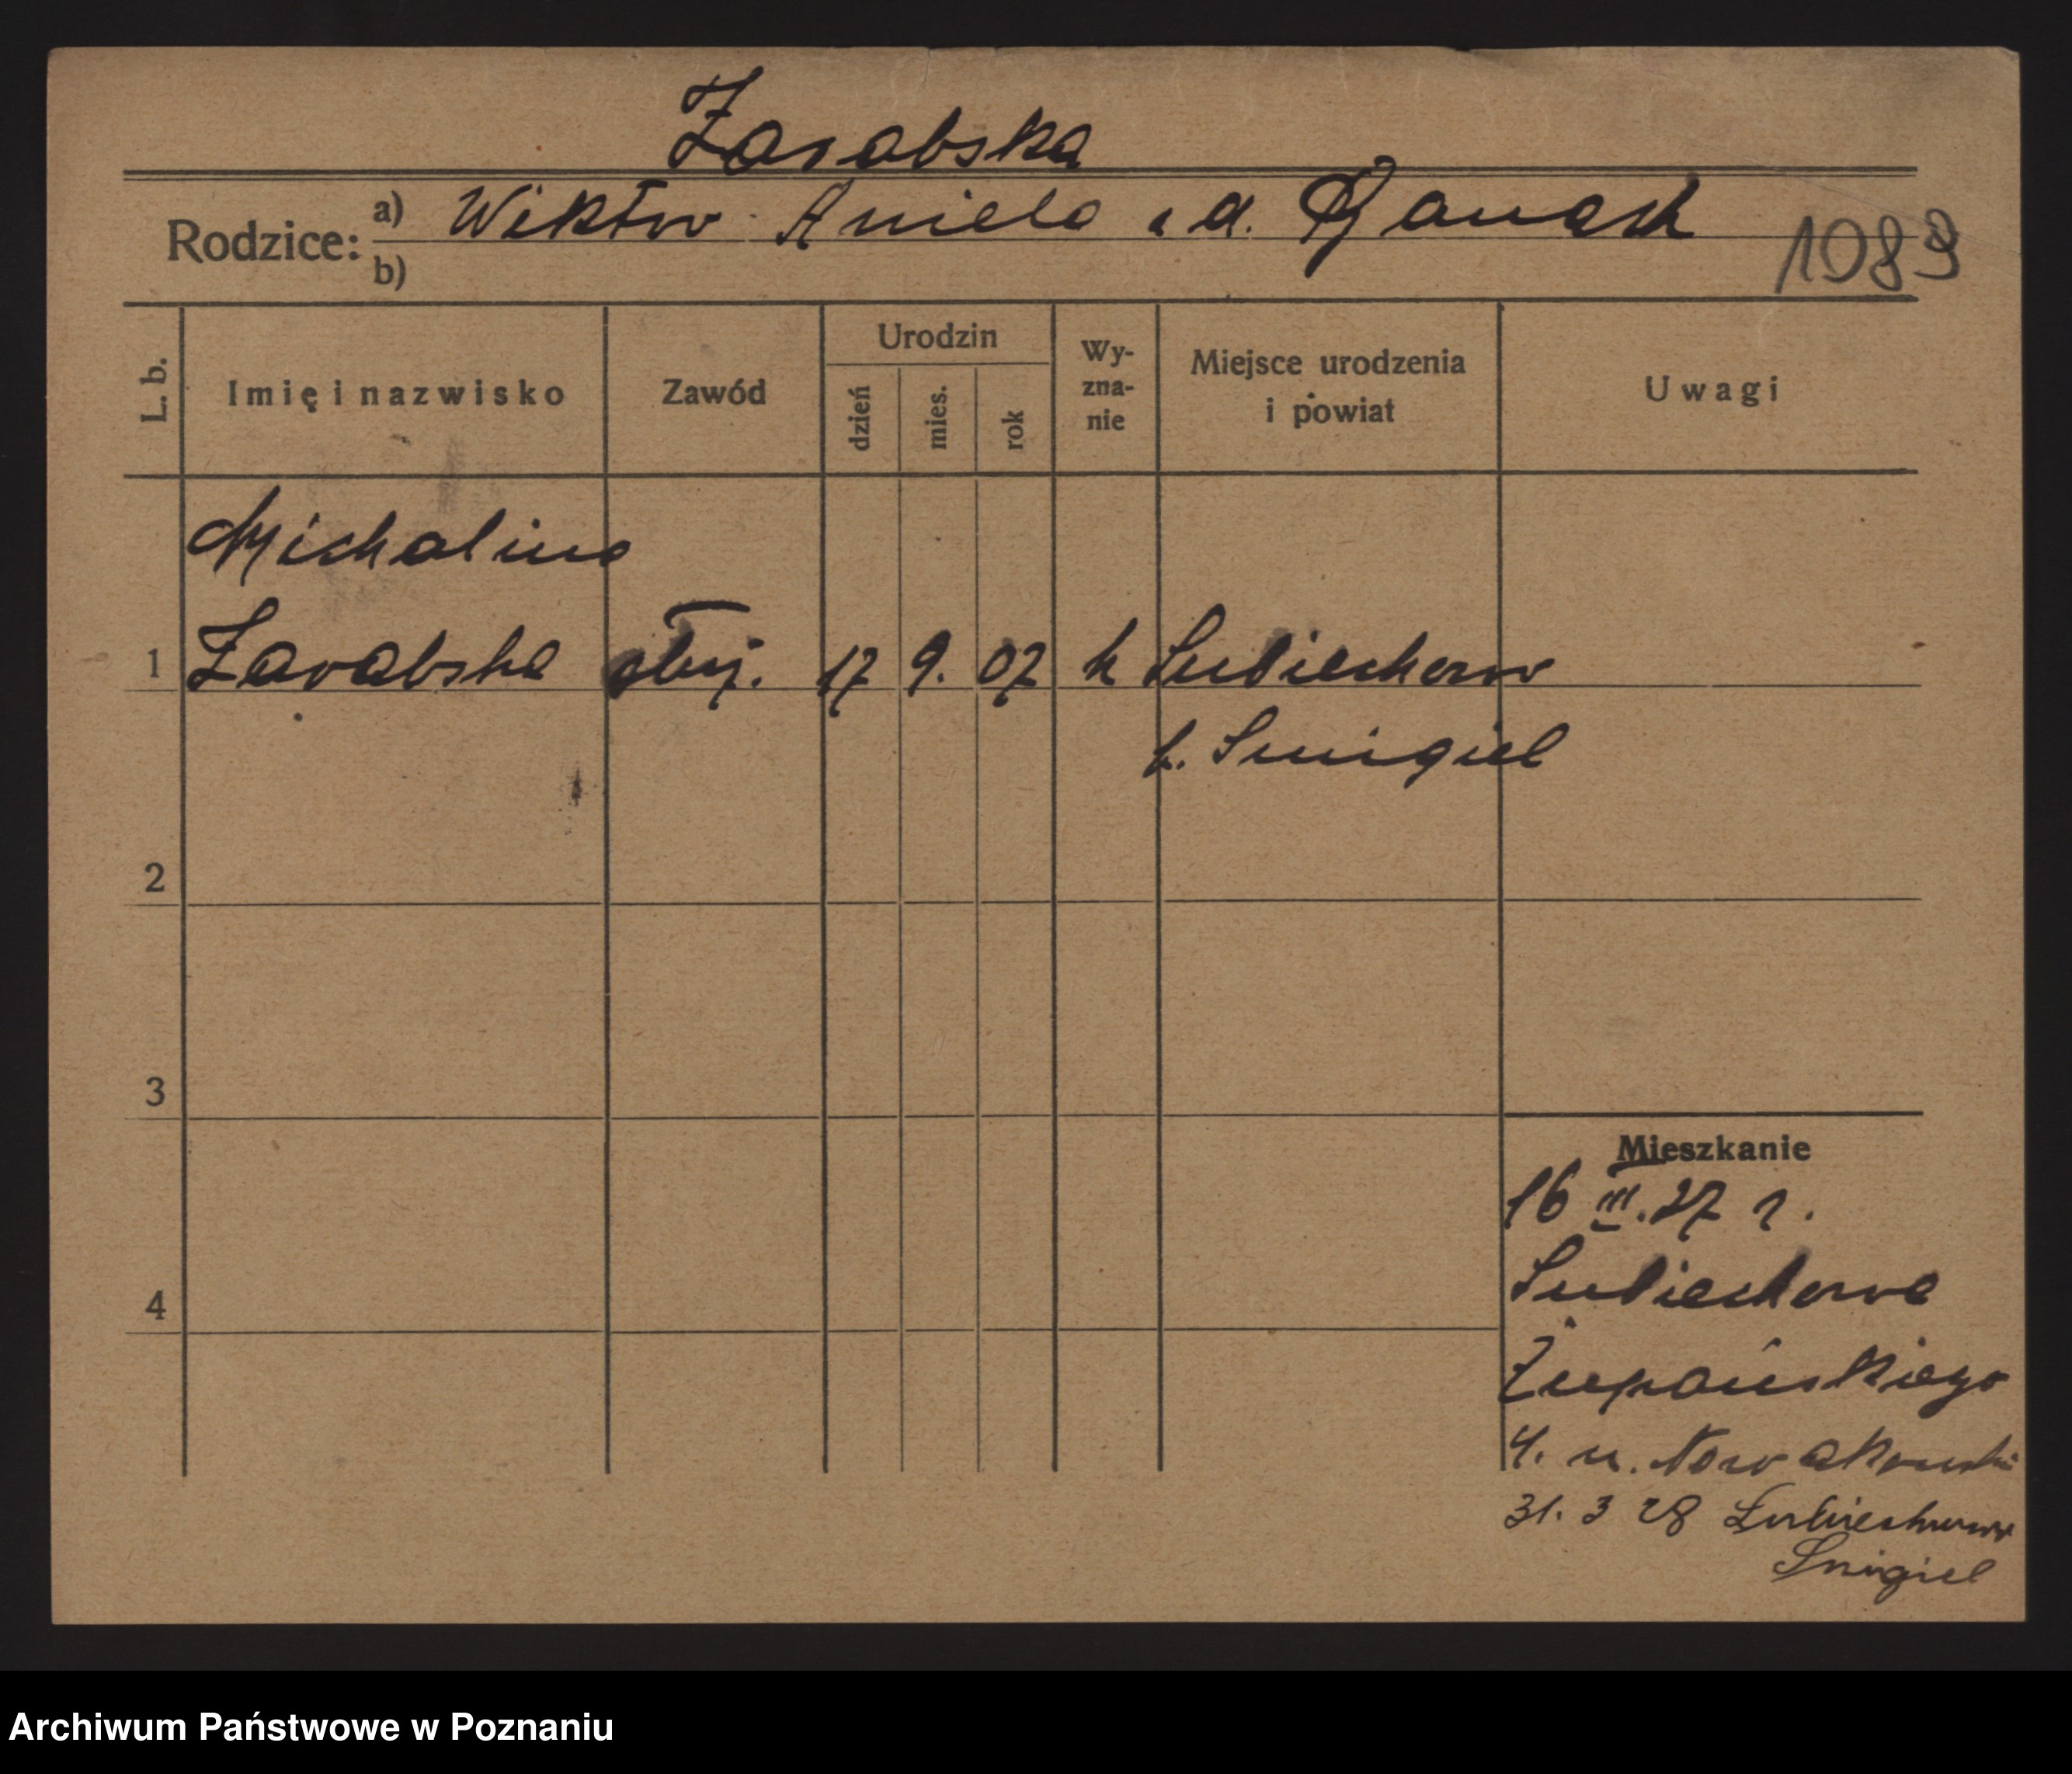 Zarabska
Rodzice: a) Wiktor Aniela z d. Banach
b)
1083
L. b.
Imię i nazwisko
Zawód
Urodzin
dzień
mies.
rok
Wy-
zna-
nie
Miejsce urodzenia
i powiat
Uwagi
Michalina
1 Zarabska służ. 17 9. 07 k Lubiechowo
p. Śmigiel
2
3
4
Mieszkanie
16 III. 27 r.
Lubiechowo
Żupańskiego
4. u. Nowakowski
31. 3 28 Lubiechowo
Śmigiel
Archiwum Państwowe w Poznaniu